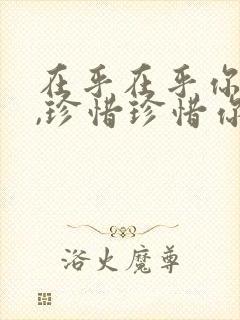 在乎在乎你
,珍惜珍惜你
浴火魔尊